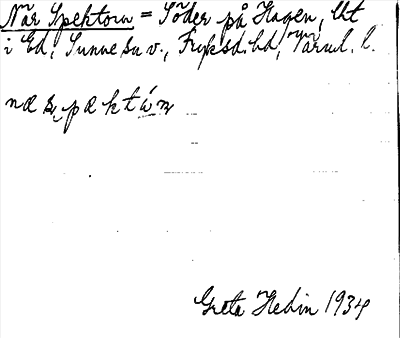 När Spektorn = Söder på Hagen, lht
i Ed, Sunne sn v., Fryksd. hd, Värml. l.
næ s̩pæktǻn
Greta Hedin 1934